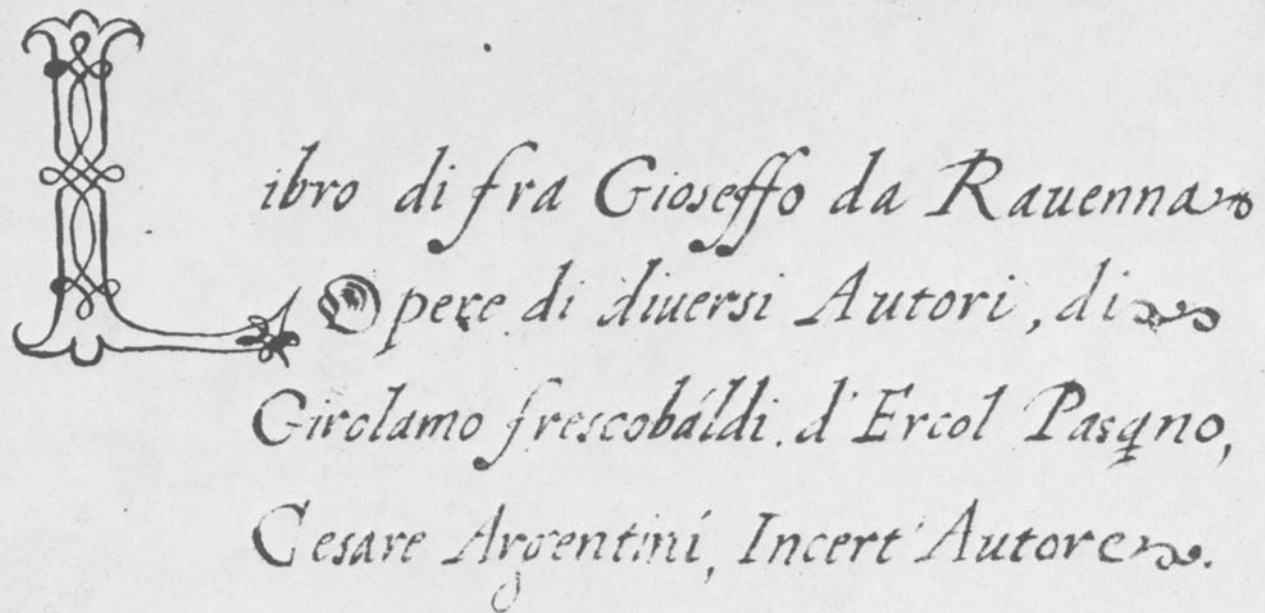 Libro di fra Gioseffo da Rauenna
Opere di diuersi Autori, di
Girolamo frescobaldi. d'Ercol Pasqno,
Cesare Argentini, Incert' Autore.